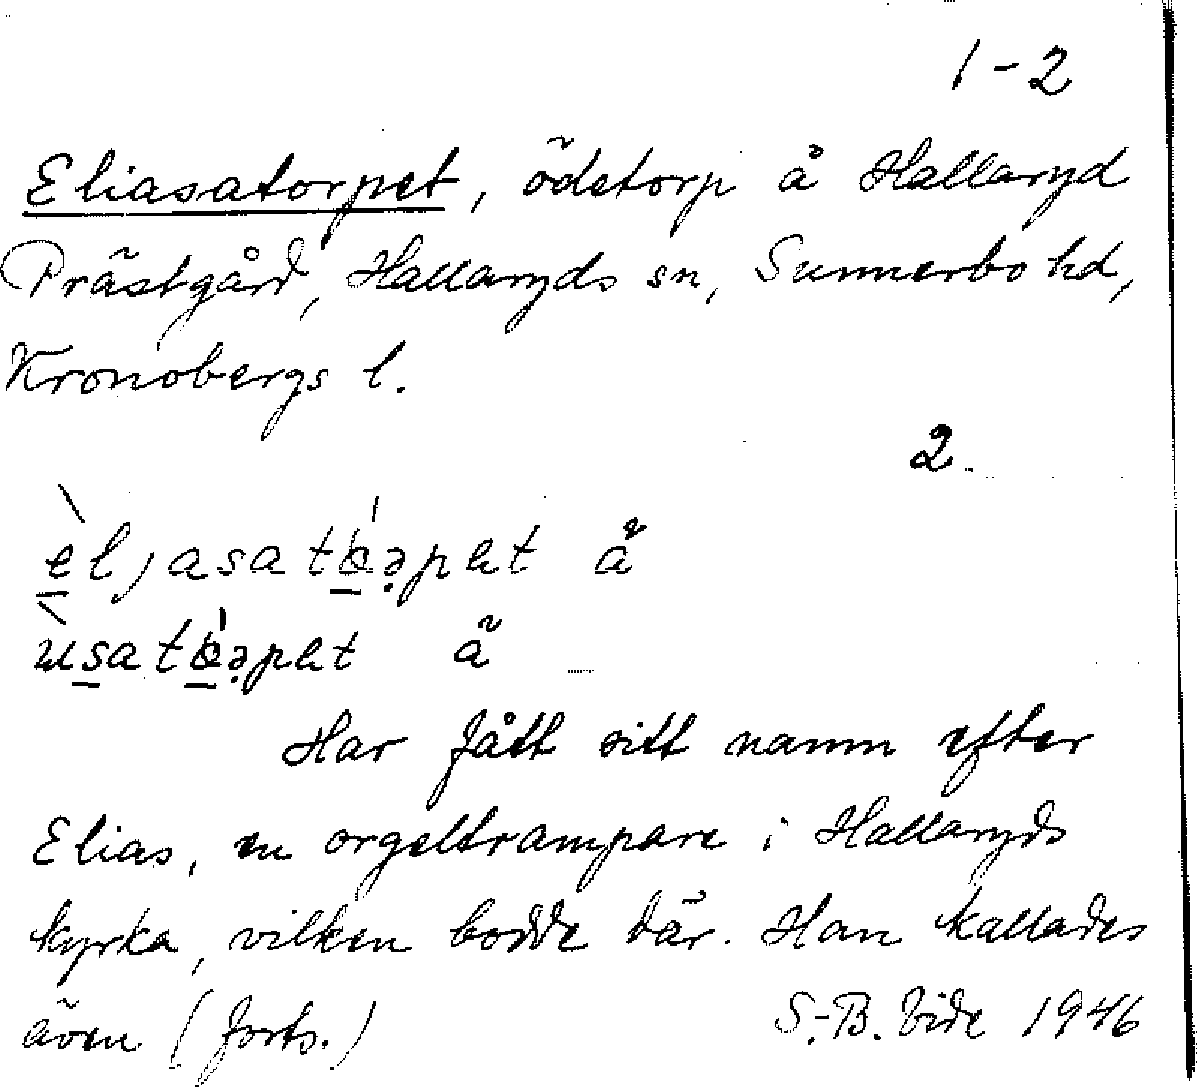 1-2
Eliasatorpet, ödetorp å Hallaryd
Prästgård, Hallaryds sn, Sunnerbo hd,
Kronobergs l.
2.
Har fått sitt namn efter
Elias, en orgeltrampare i Hallaryds
kyrka, vilken bodde där. Han kallades
även (forts.) S.-B. Vide 1946